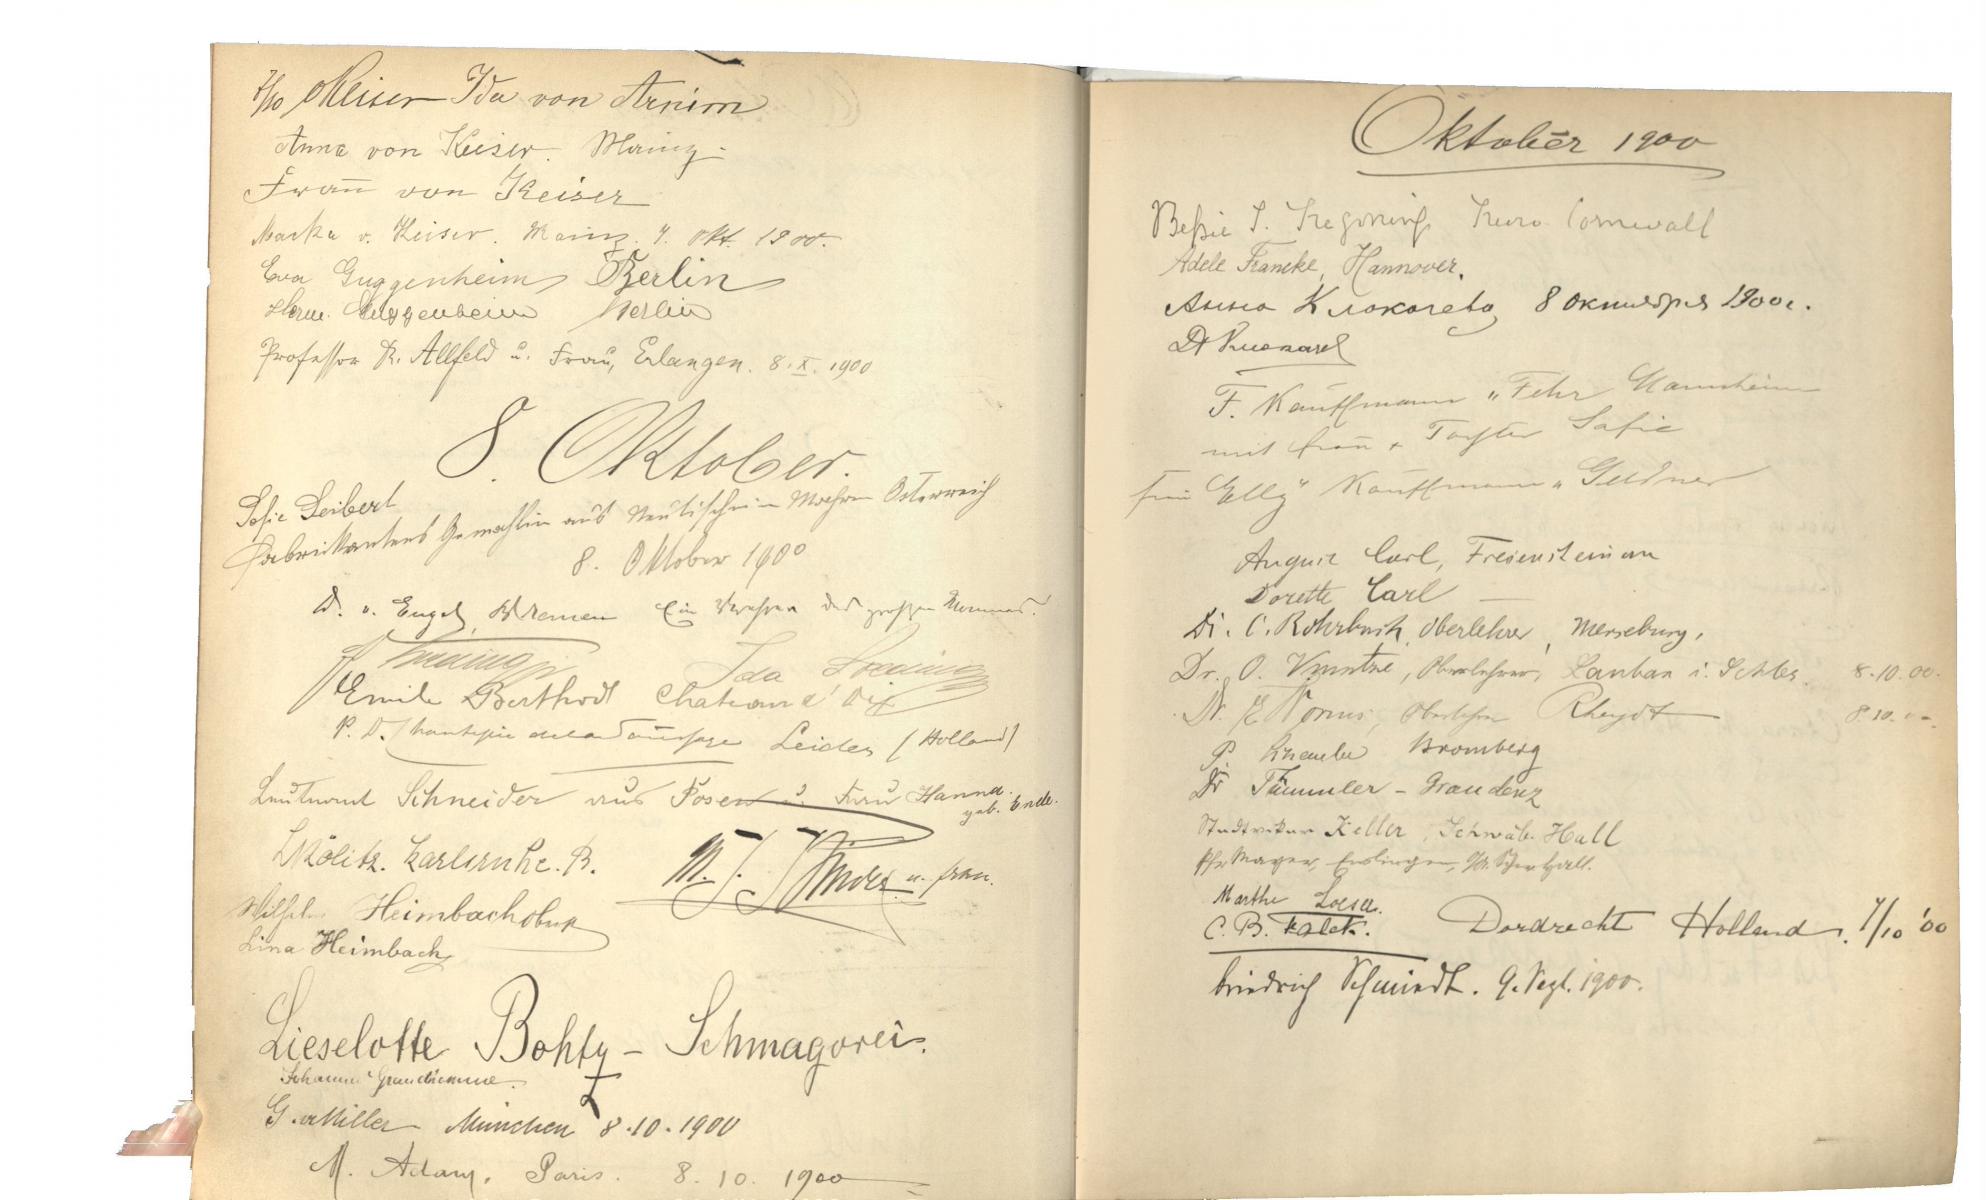 7/10 Meiser Ida von Arnim
Anna von Keiser. Mainz.
Frau von Keiser
v. Keiser. Mainz. 7. Okt. 1900.
Eva Guggenheim Berlin
Herm. Guggenheim Berlin
Professor Allfeld u. Frau, Erlangen. 8. X. 1900
8. Oktober.
Sofie Seibert
Fabrikantens Gemahlin aus Neutischein Maehren Österreich
8. Oktober 1900
v. Engel, Bremen Ein Verehrer des großen Mannes.
Ida
Emile Berthod Chateau d'Oex
P. D. Chantepie de la Saussaye Leiden (Holland)
Leutnant Schneider aus Posen u. Frau Hanna
geb. Ende.
Karlsruhe. B.
M. J. u. Frau.
Wilhelm Heimbach
Lina Heimbach
Lieselotte Bohty – Schmagorei.
Johanna
G. Miller München 8.10.1900
M. Adam, Paris. 8. 10. 1900
Oktober 1900
Beßie S. Tregoning Truro Cornwall
Adele Francke, Hannover.
Анна Клокачева 8 октября 1900 г.
F. Kauffmann "Fehr Mannheim
mit Frau + Tochter Sofie
Frau "Elly" Kauffmann "Geldner
August Carl, Freiensteinau
Dorette Carl —
Dr. C. Rohrbach, Oberlehrer, Merseburg,
Dr. O. Kuntze, Oberlehrer, Lauban i. Schles. 8.10.00.
Dr. E. Oberlehrer Rheydt 8.10.00.
P. Bromberg
Dr Tümmler - Graudenz
Stadtvikar Keller, Schwäb. Hall
Pfr. Mayer,
Marthe
C. B. Falck. Dordrecht Holland. 7/10 '00
Friedrich Schmidt. 9. Sept. 1900.